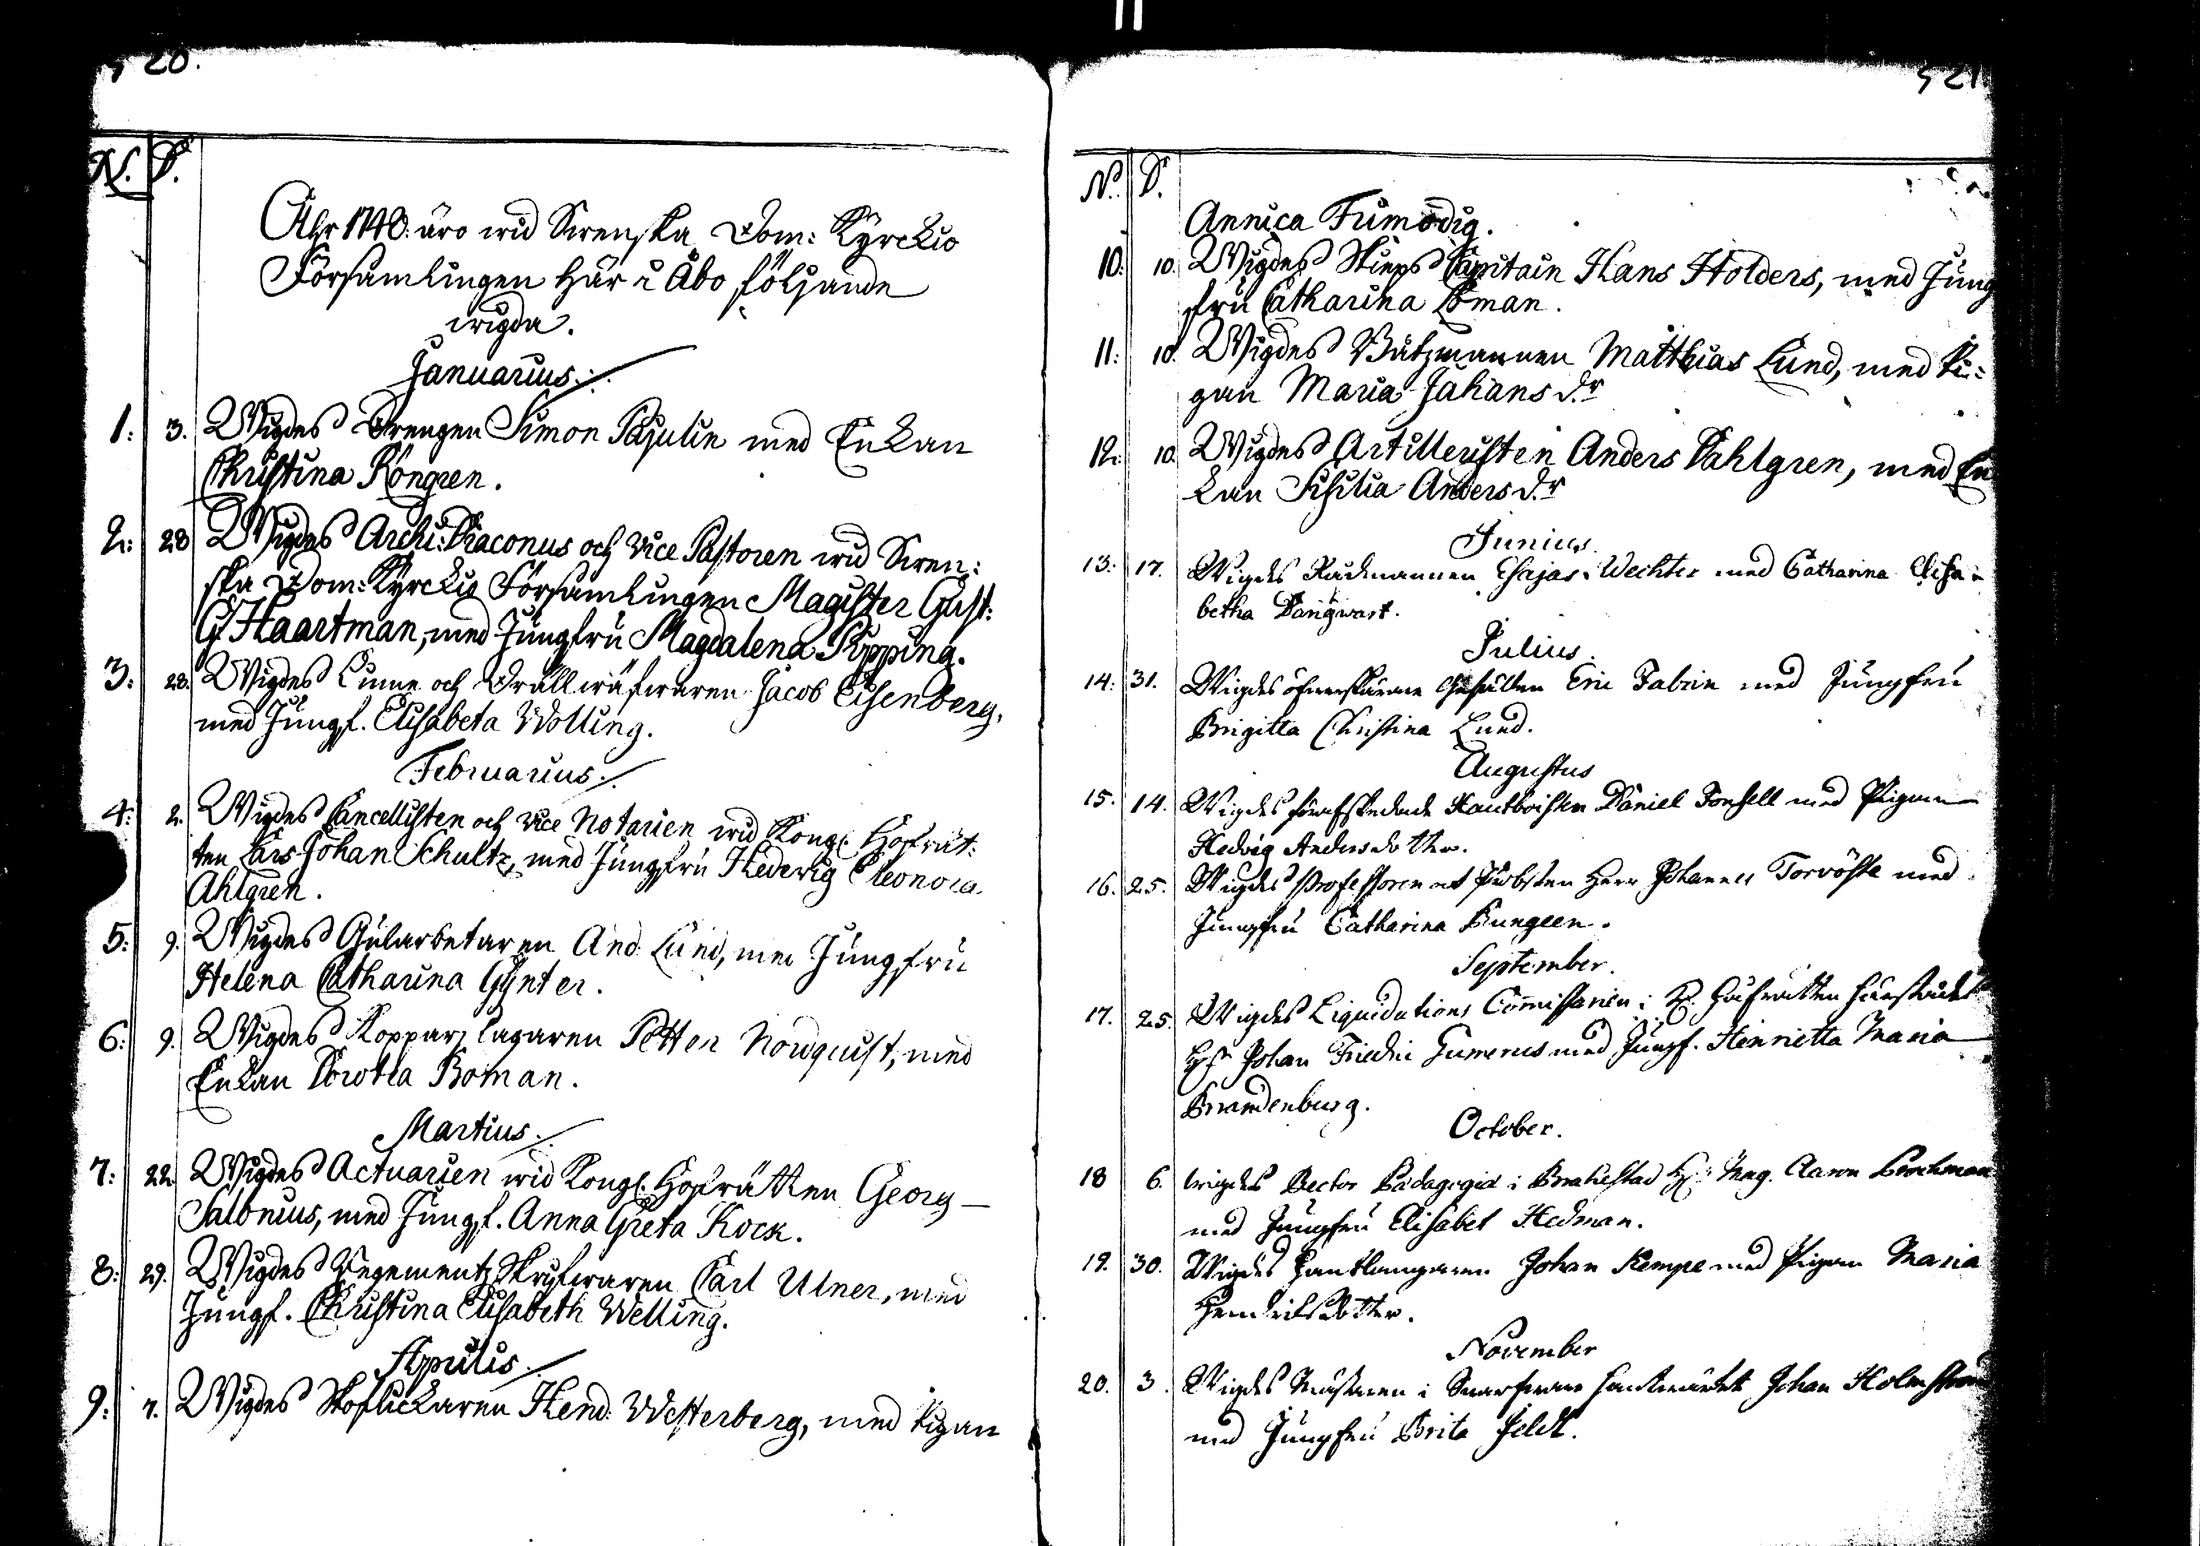 520.
N. D.
Åhr 1740. äro wid Swenska Dom: Kyrckio
Församlingen här i Åbo följande
wigda.
Januarius.
1: 3. Wigdes Drengen Simon Pajulin med Enkan
Christina Kongren.
2: 28 Wigdes Archi-Diaconus och vice Pastoren wid Swen:
ska Dom: Kyrckio Församlingen Magister Gust:
G. Haartman, med Jungfru Magdalena Pipping.
3: 28. Wigdes Linne och Dräll wäfwaren Jacob Eisenberg,
med Jungf. Elisabeta Wolling.
Februarius.
4: 2. Wigdes Cancellisten och vice Notarien wid Kongl. Hofrät:
ten Lars Johan Schultz, med Jungfru Hedewig Eleonora
Ahlgren.
5: 9. Wigdes Gålarbetaren And. Lund, med Jungfru
Helena Catharina Gÿnter.
6: 9. Wigdes Kopparslagaren Petter Nordquist, med
Enkan Dorotea Boman.
Martius.
7: 22 Wigdes Actuarien wid Kongl. Hofrätten Georg
Salonius, med Jungf. Anna Greta Kock.
8: 29. Wigdes Regementz Skrifwaren Carl Ulner, med
Jungf. Christina Elisabeth Welling.
Aprilis.
9: 7. Wigdes Skoflickaren Hend. Westerberg, med Pigan
521
N. D.
Annica Fumodig.
10. 10. Wigdes Skieps Capitain Hans Holders, med Jung
fru Catharina Loman.
11: 10. Wigdes Båtzmannen Matthias Lund, med Pi:
gan Maria Johans dr
12. 10. Wigdes Artilleristen Anders Dahlgren, med En
kan Sisilia Anders dr
Junius.
13: 17. Wigdes Rådmannen Esajas Wechter med Catharina Elisa
betha Dangwart.
Julius.
14: 31. Wigdes Gesällen Eric Fabrin med Jungfru
Brigitta Christina Lund.
Augustus
15. 14. Wigdes förafskedade Hautboisten Daniel Fonsell med Pigan
Hedvig Andersdotter.
16. 25. Wigdes Professoren och Probsten Herr Johannes Torvöste med
Jungfru Catharina Bungeen.
September.
17. 25. Wigdes Liquidations Commissarien i K. Hofrätten
Hr Johan Friedric Gumerus med Jungf. Henrietta Maria
Brandenburg.
October.
18 6. Wigdes Rector Pædagogiæ i Brahestad Hr Mag. Aaron
med Jungfru Elisabet Hedman.
19. 30. Wigdes Hantlangaren Johan Kempe med Pigan Maria
Hendriksdotter.
November
20. 3. Wigdes Mästaren i Swarfware handtwärket Johan Holmström
med Jungfru Brita Feldt.